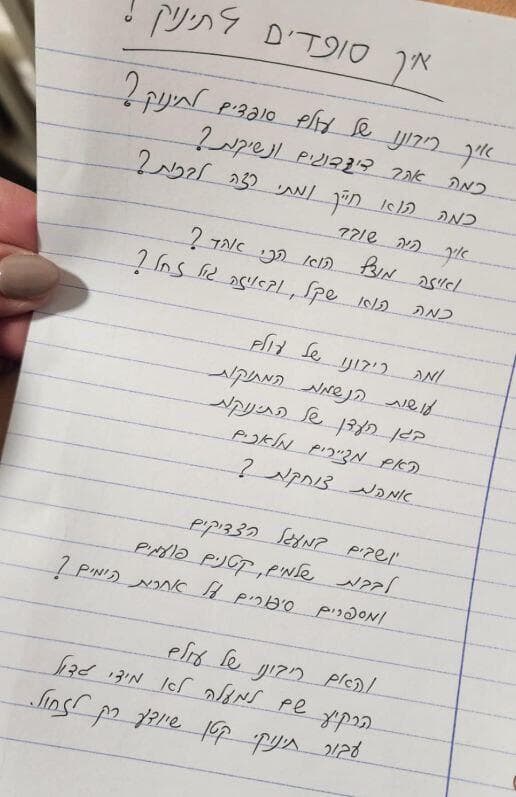 איך סופדים לתינוק?
איך ריבונו של עולם סופדים לתינוק?
כמה אהב דיגדוגים ונשיקות?
כמה הוא חייך ומתי רצה לבכות?
איך היה שובב
ואיזה מוצץ הוא הכי אהד?
כמה הוא שקל, ובאיזה גיל זחל?
ומה ריבונו של עולם
עושות הנשמות המתוקות
בגן העדן של התינוקות
האם מציירים מלאכים
אמהות צוחקות?
יושבים במעגל הצדיקים
לבבות שלמים, קטנים פועמים
ומספרים סיפורים על אחרית הימים?
והאם ריבונו של עולם
הרקיע שם למעלה לא מידי גדול
עבור תינוקי קטן שיודע רק לזחול.